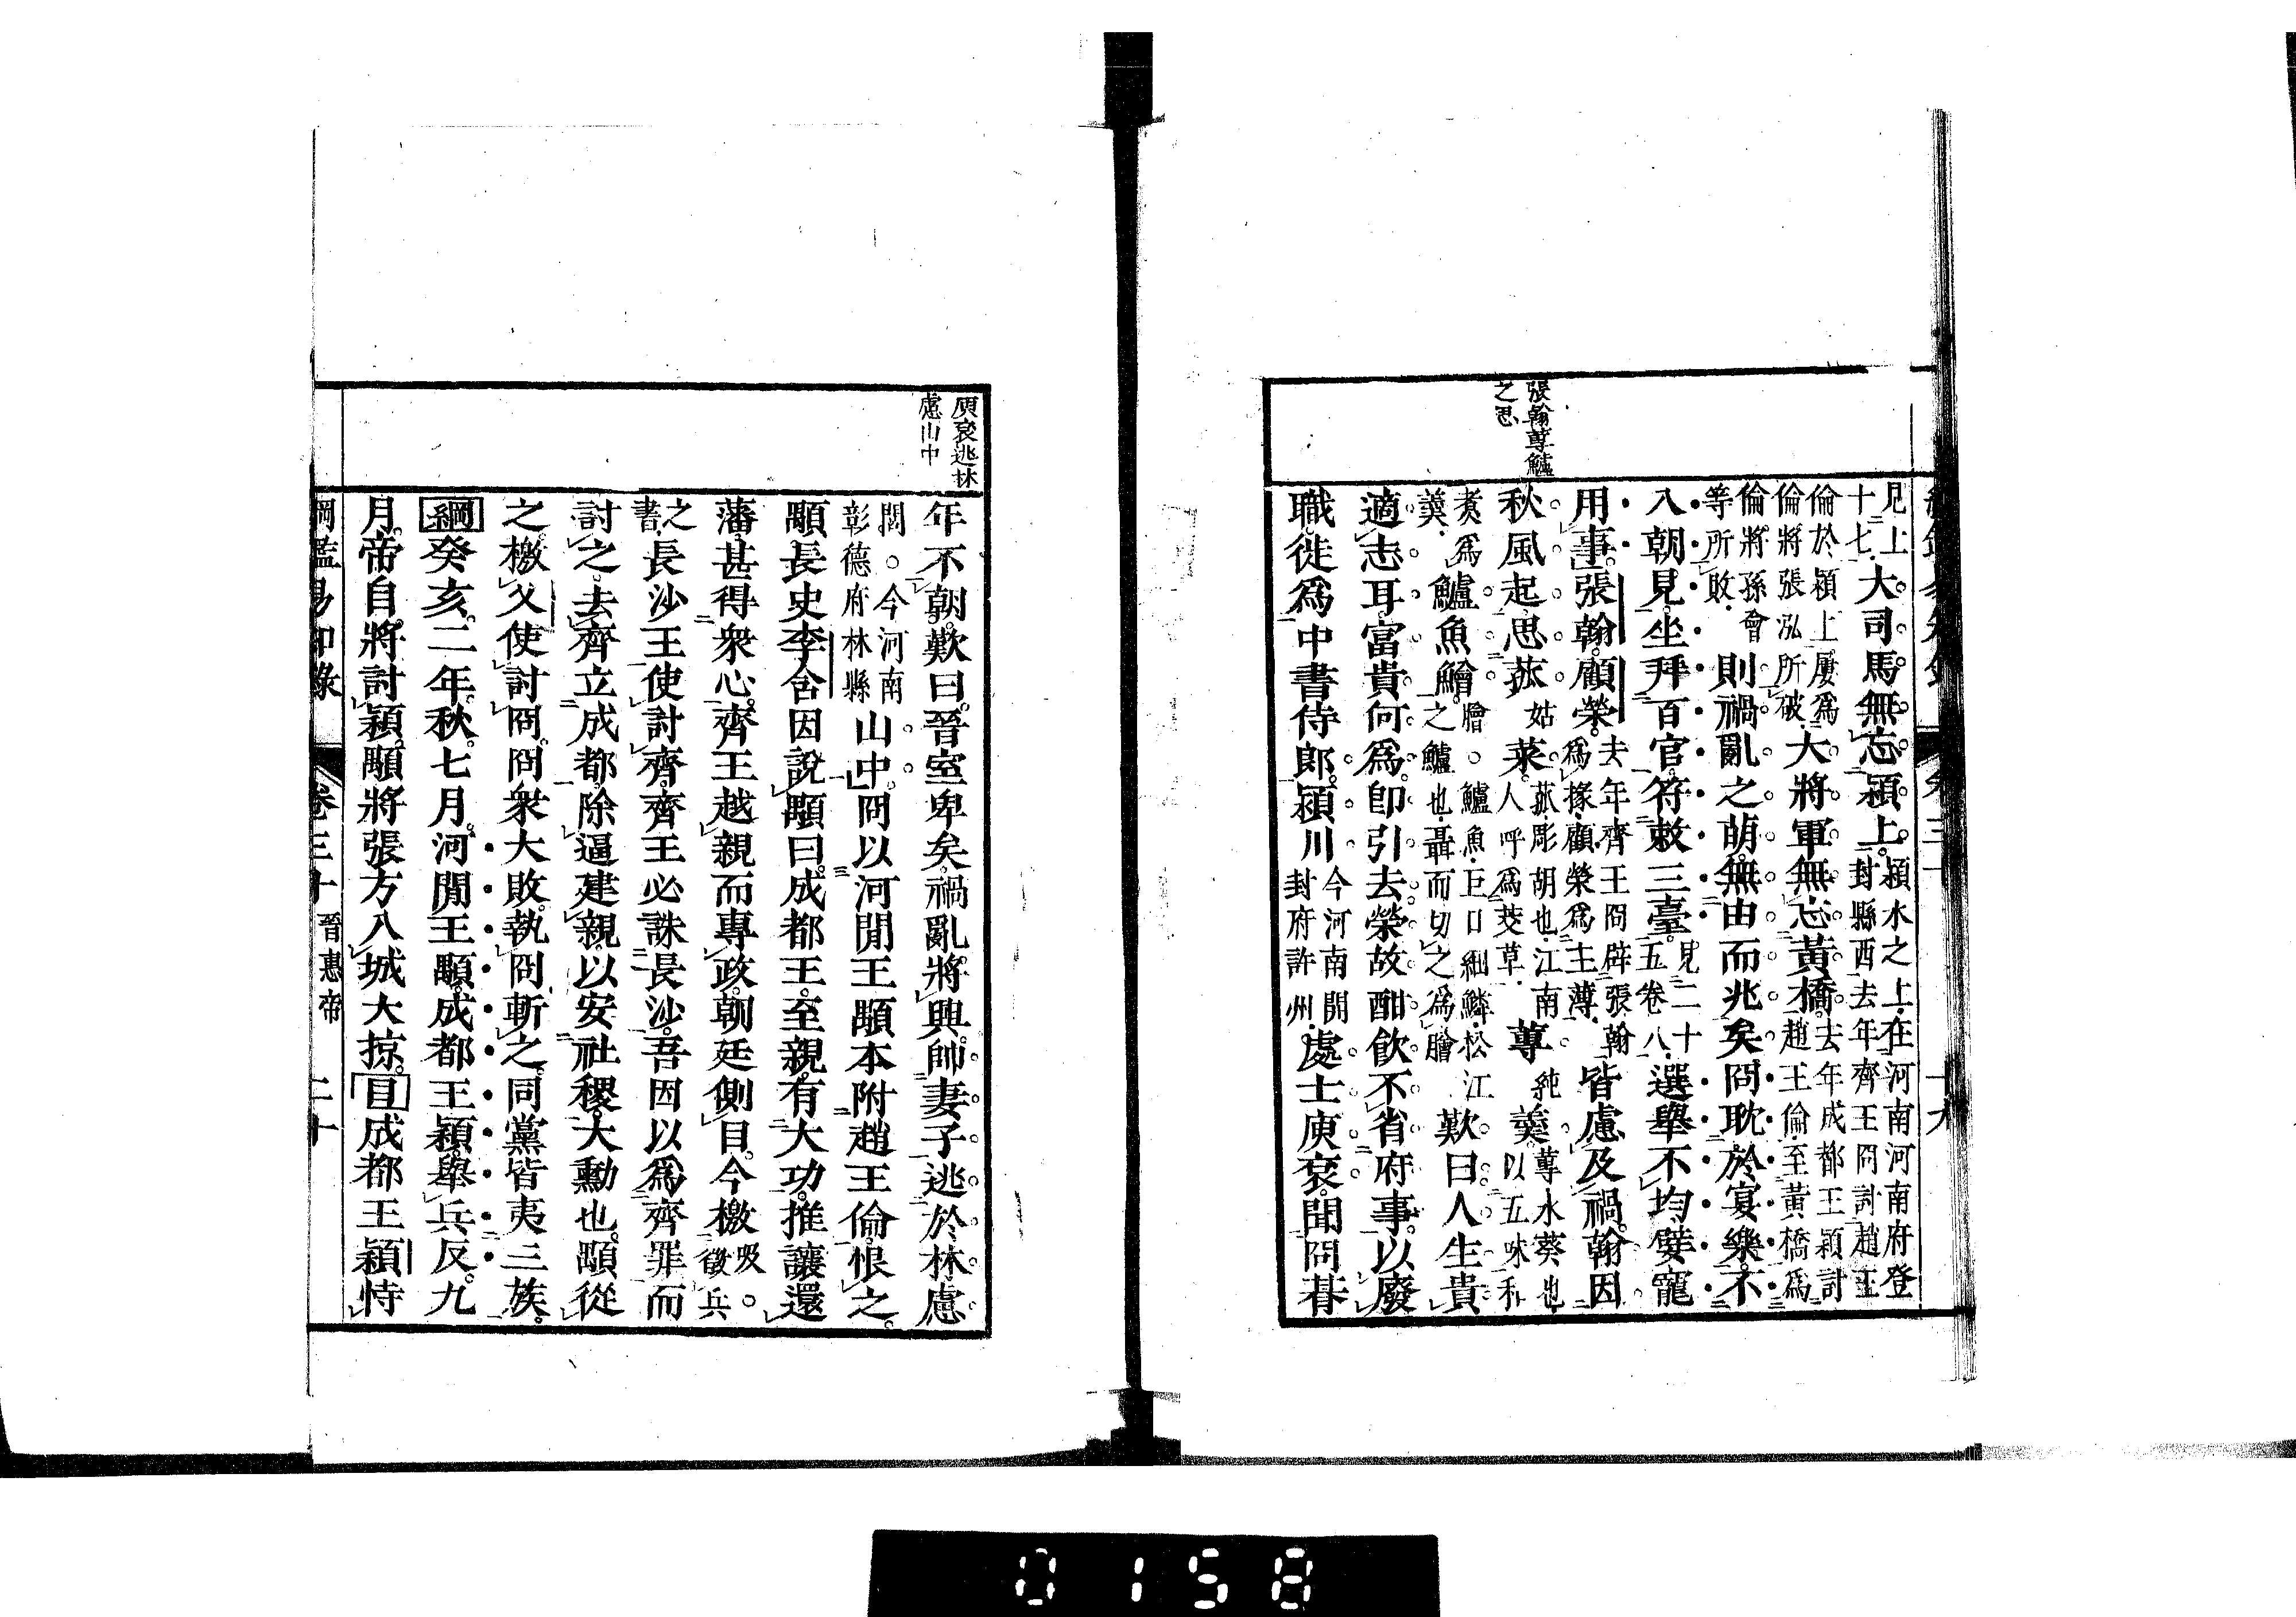 張翰蓴鱸
之思
見上
十七
大司馬無忘潁上
潁水之上在河南河南府登
封縣西去年齊王冏討趙王
倫於潁上屢為
倫將張泓所破
大將軍無忘黃橋
去年成都王穎討
趙王倫至黃橋為
倫將孫會
等所敗
則禍亂之萌無由而兆矣冏耽於宴樂不
入朝見坐拜百官符敕三臺
見二十
五卷八
選舉不均嬖寵
用事張翰顧榮
去年齊王冏辟張翰
為掾顧榮為主薄
皆慮及禍翰因
秋風起思菰
姑
菜
菰彫胡也江南
人呼為茭草
蓴
純
羹
蓴水葵也
以五味和
煮為
羹
鱸魚鱠
膾○鱸魚巨口細鱗松江
之鱸也聶而切之為膾
歎曰人生貴
適志耳富貴何為卽引去榮故酣飲不省府事以廢
職徙為中書侍郎潁川
今河南開
封府許州
處士庾袞聞冏朞
庾袞逃林
慮山中
年不朝歎曰晉室卑矣禍亂將興帥妻子逃於林慮
閭○今河南
彰德府林縣
山中冏以河閒王顒本附趙王倫恨之
顒長史李含因說顒曰成都王至親有大功推讓還
藩甚得衆心齊王越親而專政朝廷側目今檄
吸○
徵兵
之
書
長沙王使討齊齊王必誅長沙吾因以為齊罪而
討之去齊立成都除逼建親以安社稷大勳也顒從
之檄乂使討冏冏衆大敗執冏斬之同黨皆夷三族
綱癸亥二年秋七月河閒王顒成都王穎舉兵反九
月帝自將討穎顒將張方入城大掠目成都王穎恃
綱鑑易知錄 卷三十 晉惠帝 二十
0158